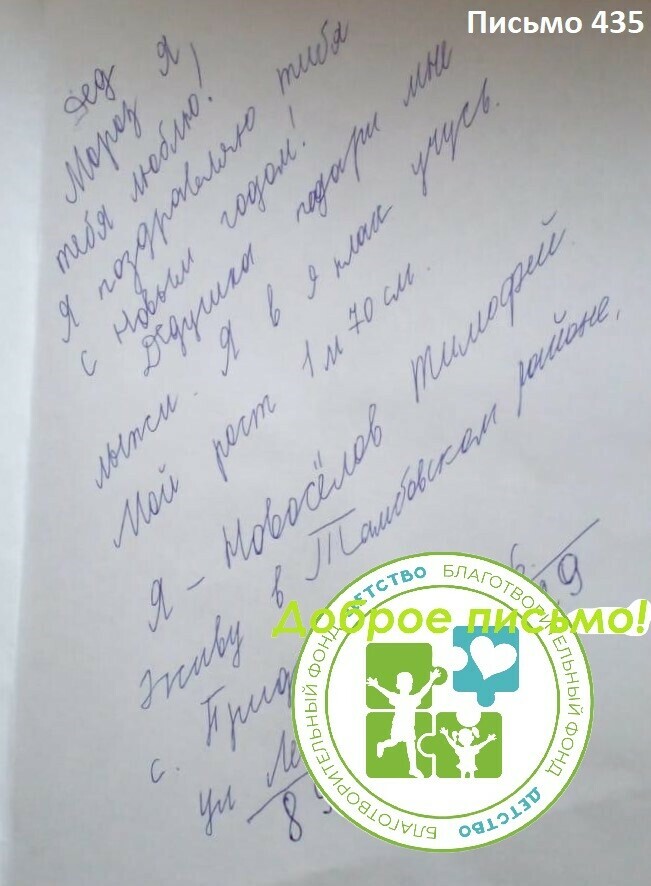 Письмо 435
Дед Я
Мороз!
тебя люблю!
Я поздравляю тибя
с Новым годом!
Дедушка подари мне
лыжи. Я в 9 клас учусь.
Мой рост 1 м 70 см.
Я - Новосёлов Тимофей.
Живу в Тамбовском районе,
с.
ул 9
8
Доброе письмо!
БЛАГОТВОРИТЕЛЬНЫЙ ФОНД ДЕТСТВО
БЛАГОТВОРИТЕЛЬНЫЙ ФОНД ДЕТСТВО